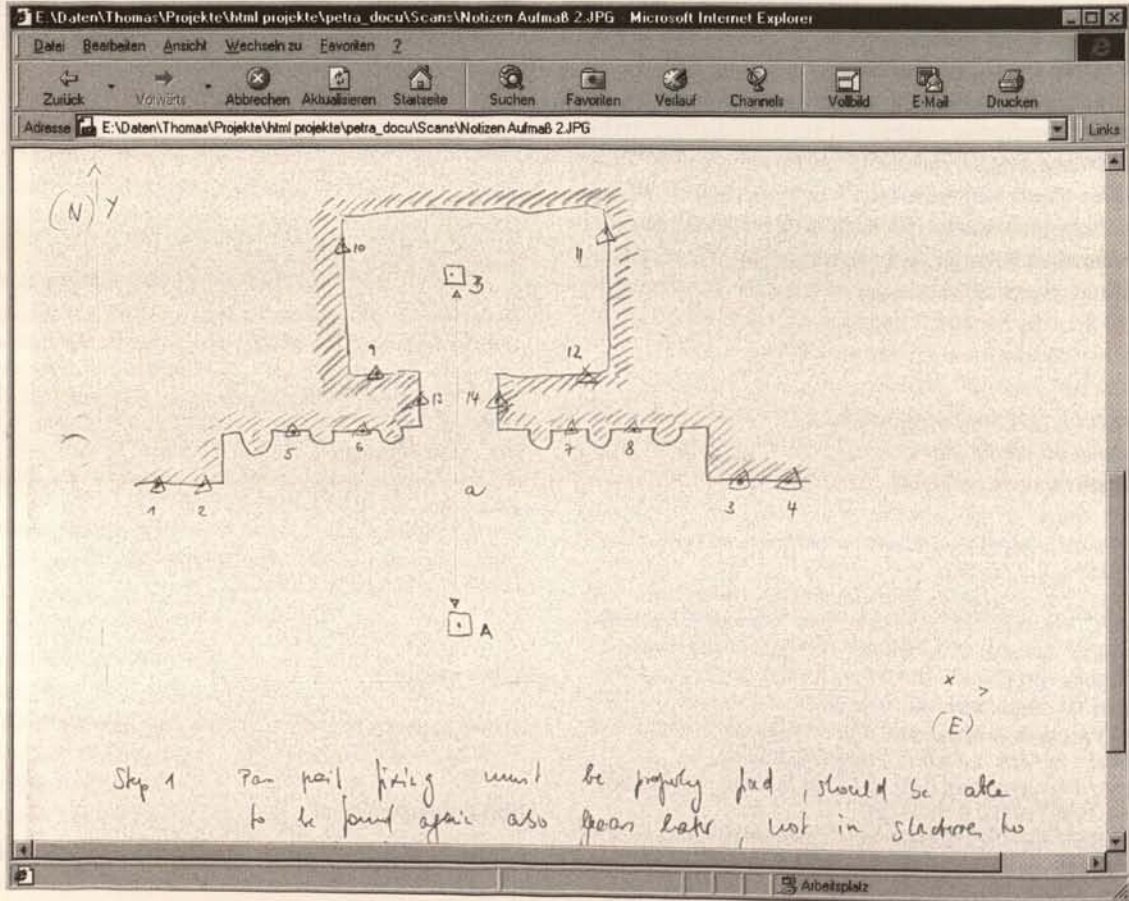 E:\Daten\Thomas\Projekte\html projekte\petra_docu\Scans\Notizen Aufmaß 2.JPG - Microsoft Internet Explorer
Datei Bearbeiten Ansicht Wechseln zu Favoriten ?
Zurück Vorwärts Abbrechen Aktualisieren Startseite Suchen Favoriten Verlauf Channels Vollbild E-Mail Drucken
Adresse E:\Daten\Thomas\Projekte\html projekte\petra_docu\Scans\Notizen Aufmaß 2.JPG Links
(N) Y
10 11
B
9 12
13 14
5 6 7 8
a
1 2 3 4
A
x >
(E)
Step 1 fixing must be properly fixed, should be able
to be found again also years later, not in structure to
Arbeitsplatz